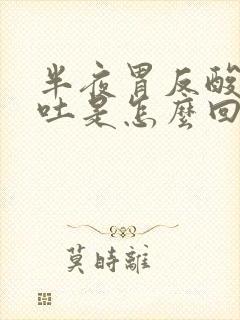 半夜胃反酸
吐是怎麼回
莫時離